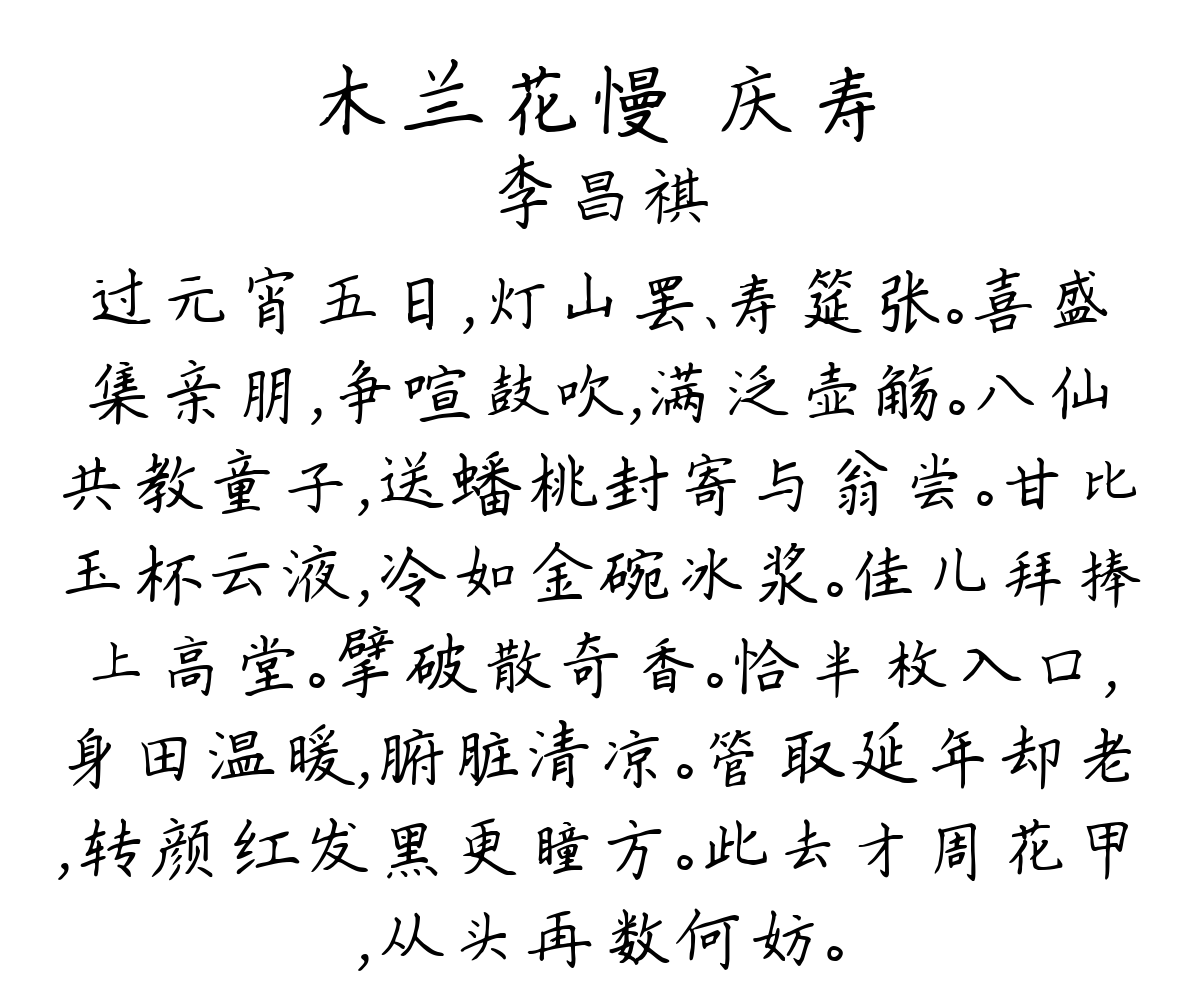 木兰花慢 庆寿
李昌祺
过元宵五日,灯山罢、寿筵张。喜盛
集亲朋,争喧鼓吹,满泛壶觞。八仙
共教童子,送蟠桃封寄与翁尝。甘比
玉杯云液,冷如金碗冰浆。佳儿拜捧
上高堂。擘破散奇香。恰半枚入口,
身田温暖,腑脏清凉。管取延年却老
,转颜红发黑更瞳方。此去才周花甲
,从头再数何妨。